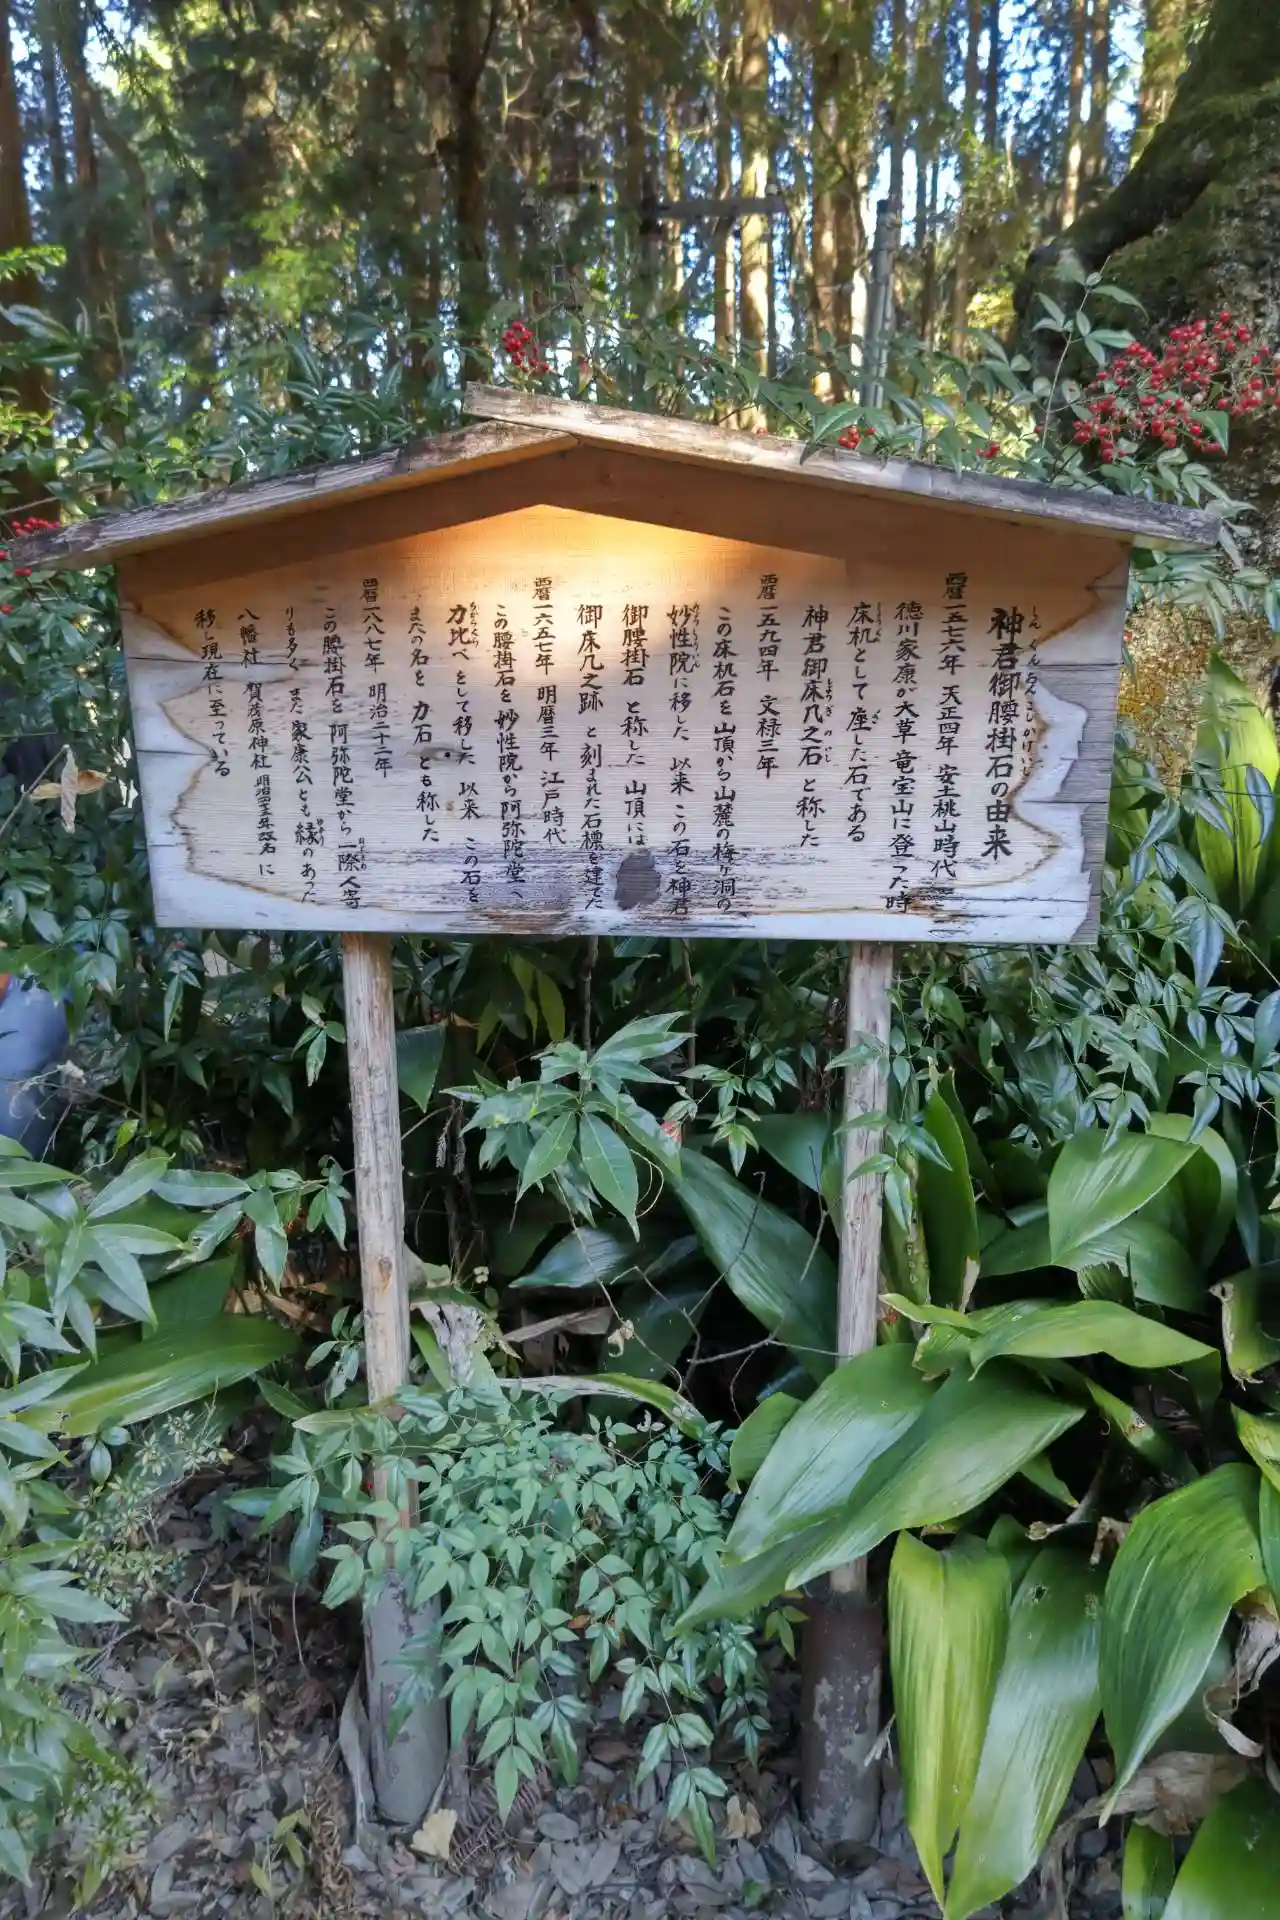 神君御腰掛石の由来
しんくんおんこしかけいし
西暦一五七六年 天正四年 安土桃山時代
徳川家康が大草 竜宝山に登った時
床机として座した石である
しょうぎ
ざ
神君御床几之石 と称した
しょうぎのいし
西暦一五九四年 文禄三年
この床机石を山頂から山麓の梅ヶ洞の
妙性院に移した 以来 この石を神君
みょうしょういん
御腰掛石 と称した 山頂には
御床几之跡 と刻まれた石標を建てた
西暦一六五七年 明暦三年 江戸時代
この腰掛石を 妙性院から阿弥陀堂へ
力比べをして移した 以来 この石を
ちからくらべ
またの名を 力石 とも称した
西暦一八八七年 明治二十年
この腰掛石を 阿弥陀堂から 一際人寄
りも多く また 家康公とも縁のあった
八幡社 賀茂原神社 に
移し現在に至っている